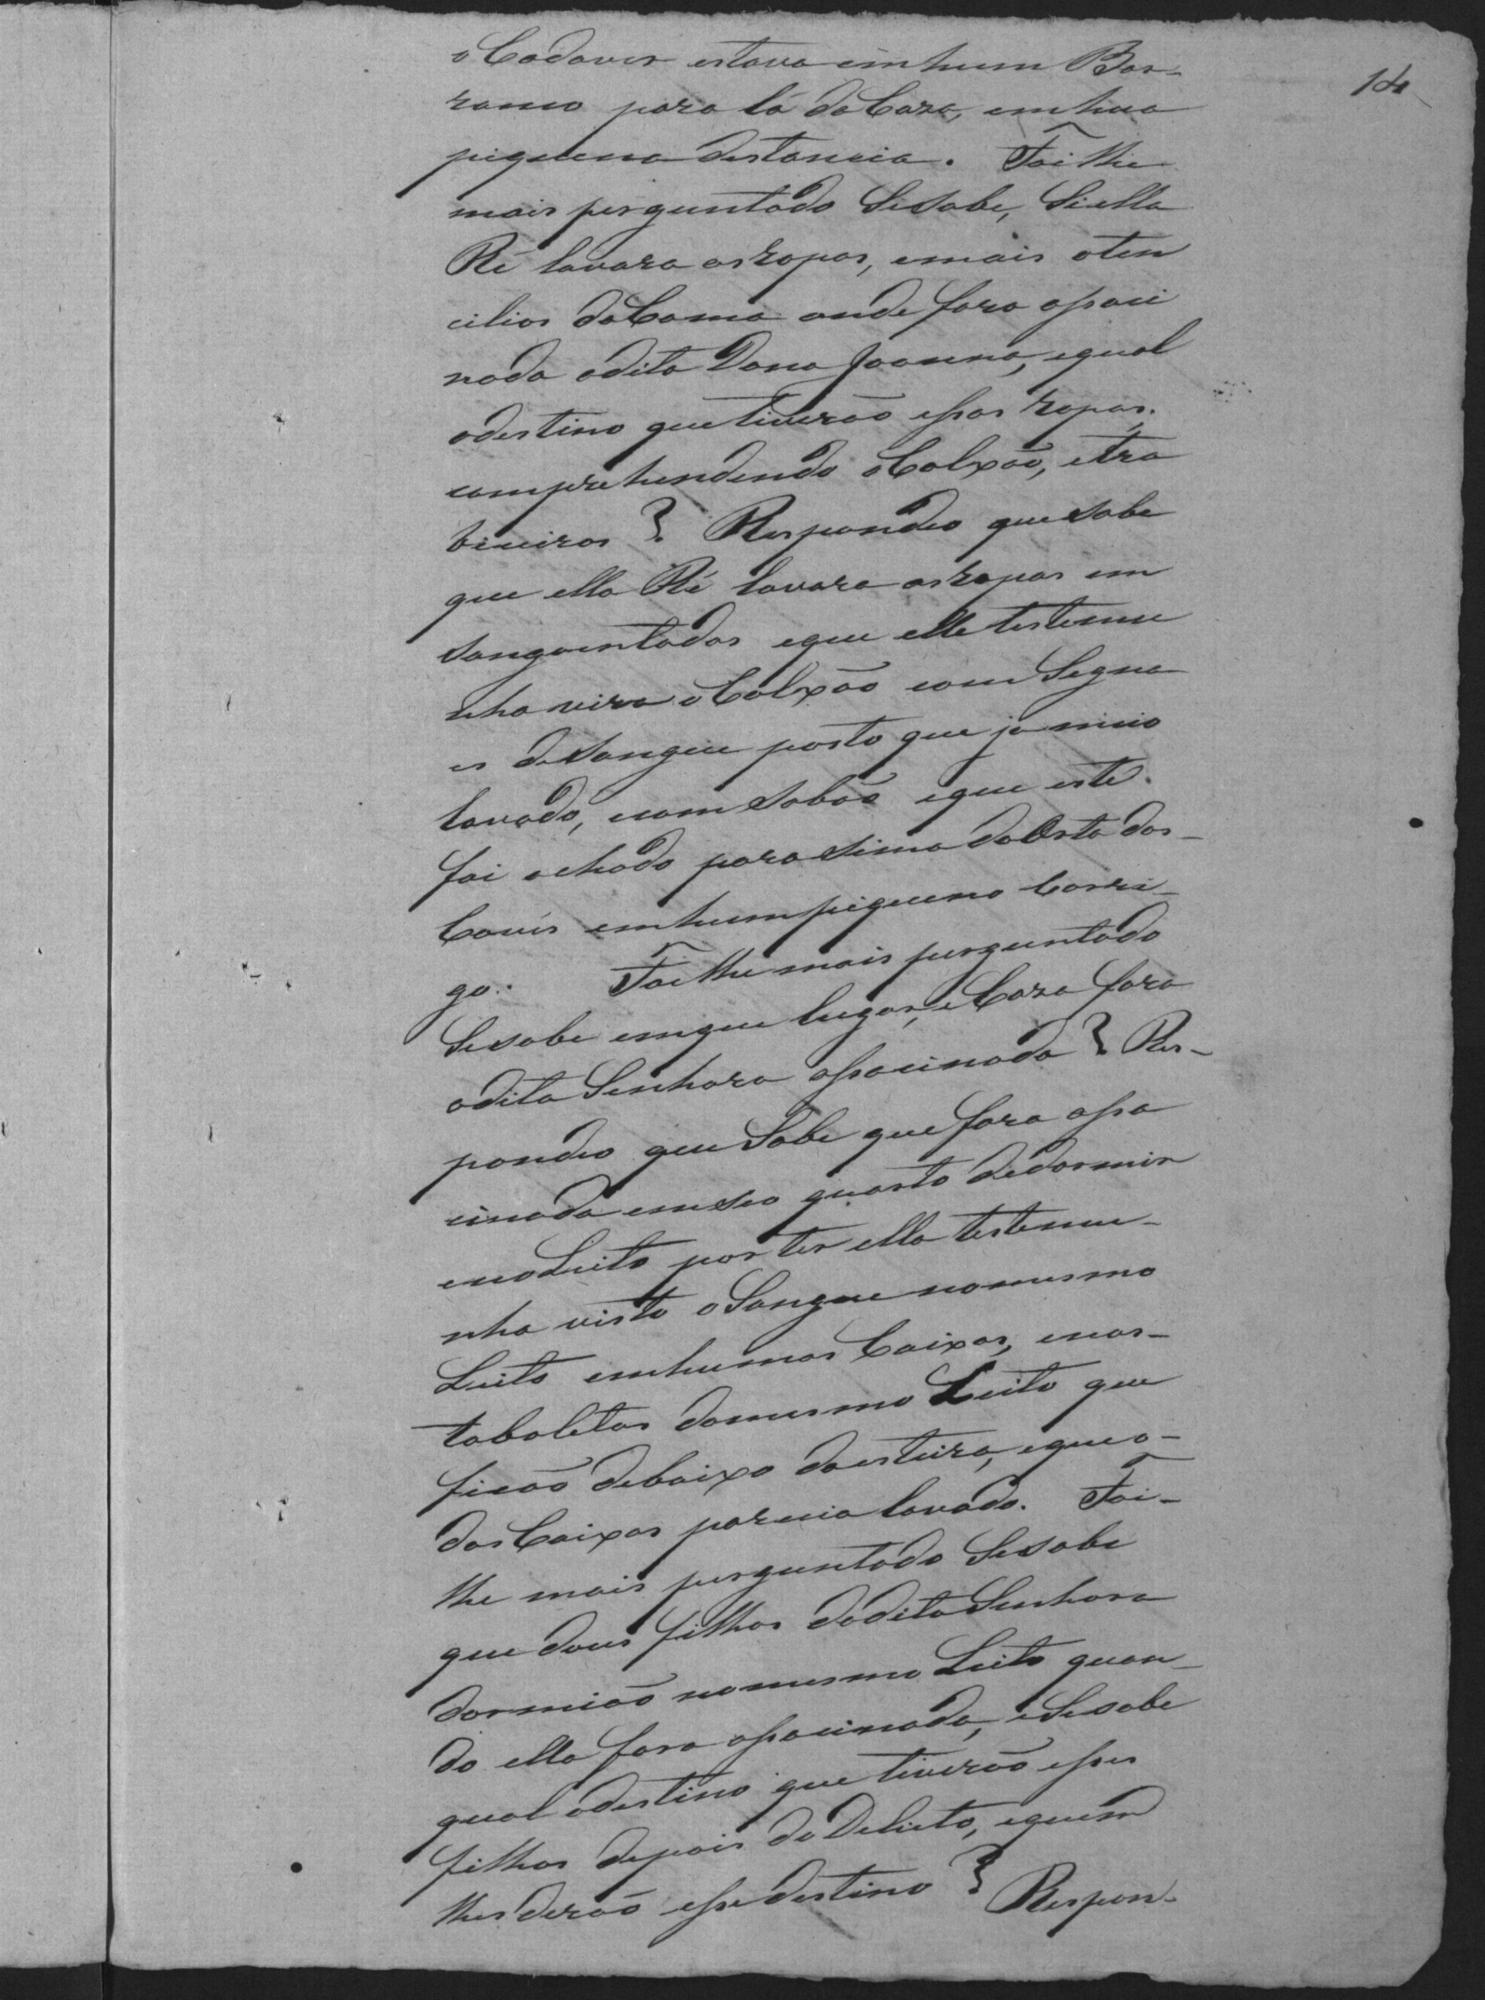 14
o Cadaver estava em hum Bar-
ranco para lá da Caza, em hua
piquena destancia. Foi lhe
mais perguntado Se sabe, Si ella
Ré lavara as ropas, e mais oten
cilios da Cama onde fora assaci
nada a dita Dona Joanna, e qual
o destino que tiverão essas ropas,
comprehendendo o Colxão, e tra
biceiros? Respondeo que sabe
que ella Ré lavara as ropas em
sangoentadas e que elle testemu
nha vira o Colxão com Segna
es de sangue posto que ja meio
lavado, com sabão e que este
foi achado para sima da Orta das
Couvis em hum piqueno Corri-
go. Foi lhe mais perguntado
Se sabe em que lugar, e Caza fora
a dita Senhora assacinada? Res-
pondeo que Sabe que fora assa
cinada em seo quarto de dormir
e no Leito por ter ella testemu-
nha visto o Sangue no mesmo
Leito em humas Caixas, e nas
taboletas do mesmo Leito que
ficão debaixo da esteira, e que o
das Caixas parecia lavado. Foi-
lhe mais perguntado Se sabe
que dous filhos da dita Senhora
dormião no mesmo Leito quan-
do ella fora assacinada, e Se sabe
qual o destino que tiverão esses
filhos depois do Delicto, e quem
lhes derão esse destino? Respon-